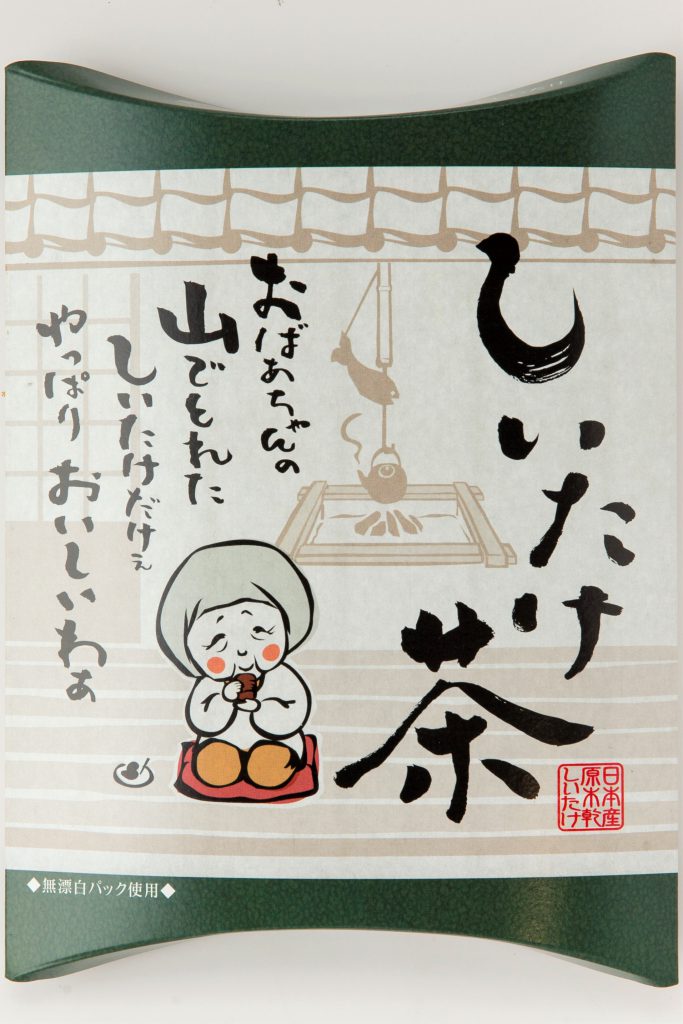 しいたけ
茶
おばあちゃんの
山でとれた
しいたけだけぇ
やっぱりおいしいわぁ
日本産
原木乾
しいたけ
◆無漂白パック使用◆